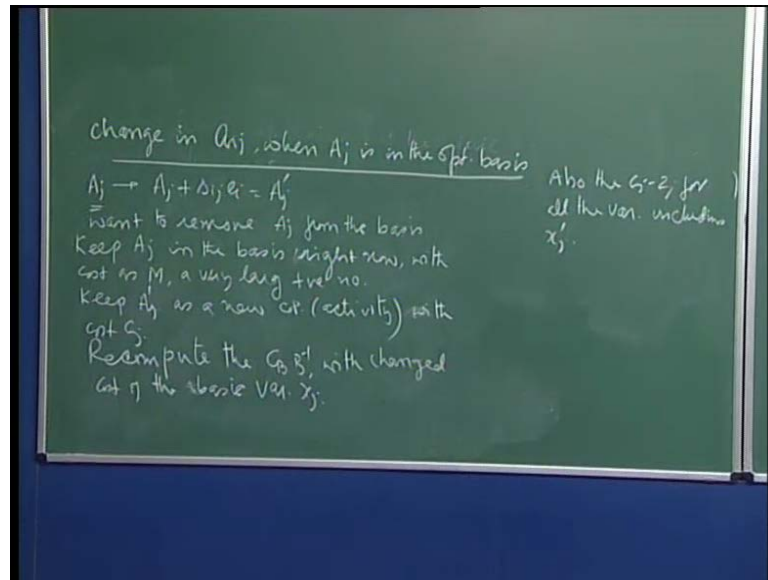 change in aij, when Aj is in the opt. basis
Aj → Aj + Δij ei = Aj'
want to remove Aj from the basis
Keep Aj in the basis right now, with
cost as M, a very larg +ve no.
Keep Aj' as a new col. (activity) with
cost Cj.
Recompute the CB B⁻¹, with changed
cost of the basic var. xj.
Also the cj-zj for
all the var. including
xj'.